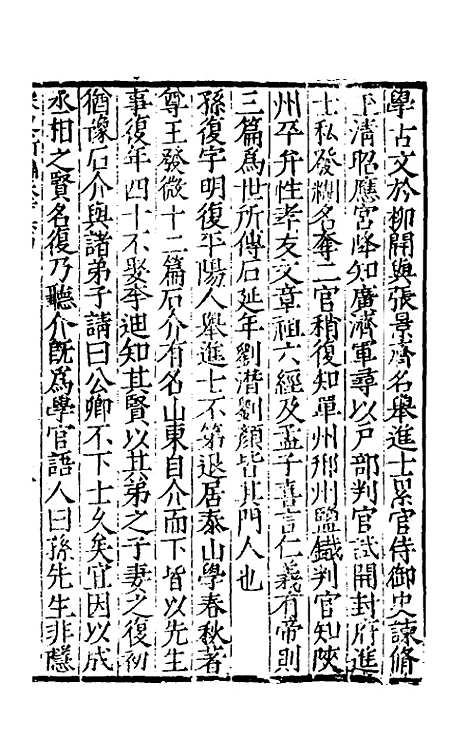 學古文於柳開與張景齊名舉進士累官侍御史諫脩
玉清昭應宮降知廣濟軍尋以戶部判官試開封府進
士私發糊名奪二官稍復知單州鄆州鹽鐵判官知陝
州卒弁性孝友文章祖六經及孟子喜言仁義有帝則
三篇為世所傳石延年劉潛劉顏皆其門人也
孫復字明復平陽人舉進士不第退居泰山學春秋著
尊王發微十二篇石介有名山東自介而下皆以先生
事復年四十不娶李迪知其賢以其弟之子妻之復初
猶豫石介與諸弟子請曰公卿不下士久矣宜因以成
丞相之賢名復乃聽介既為學官語人曰孫先生非隱